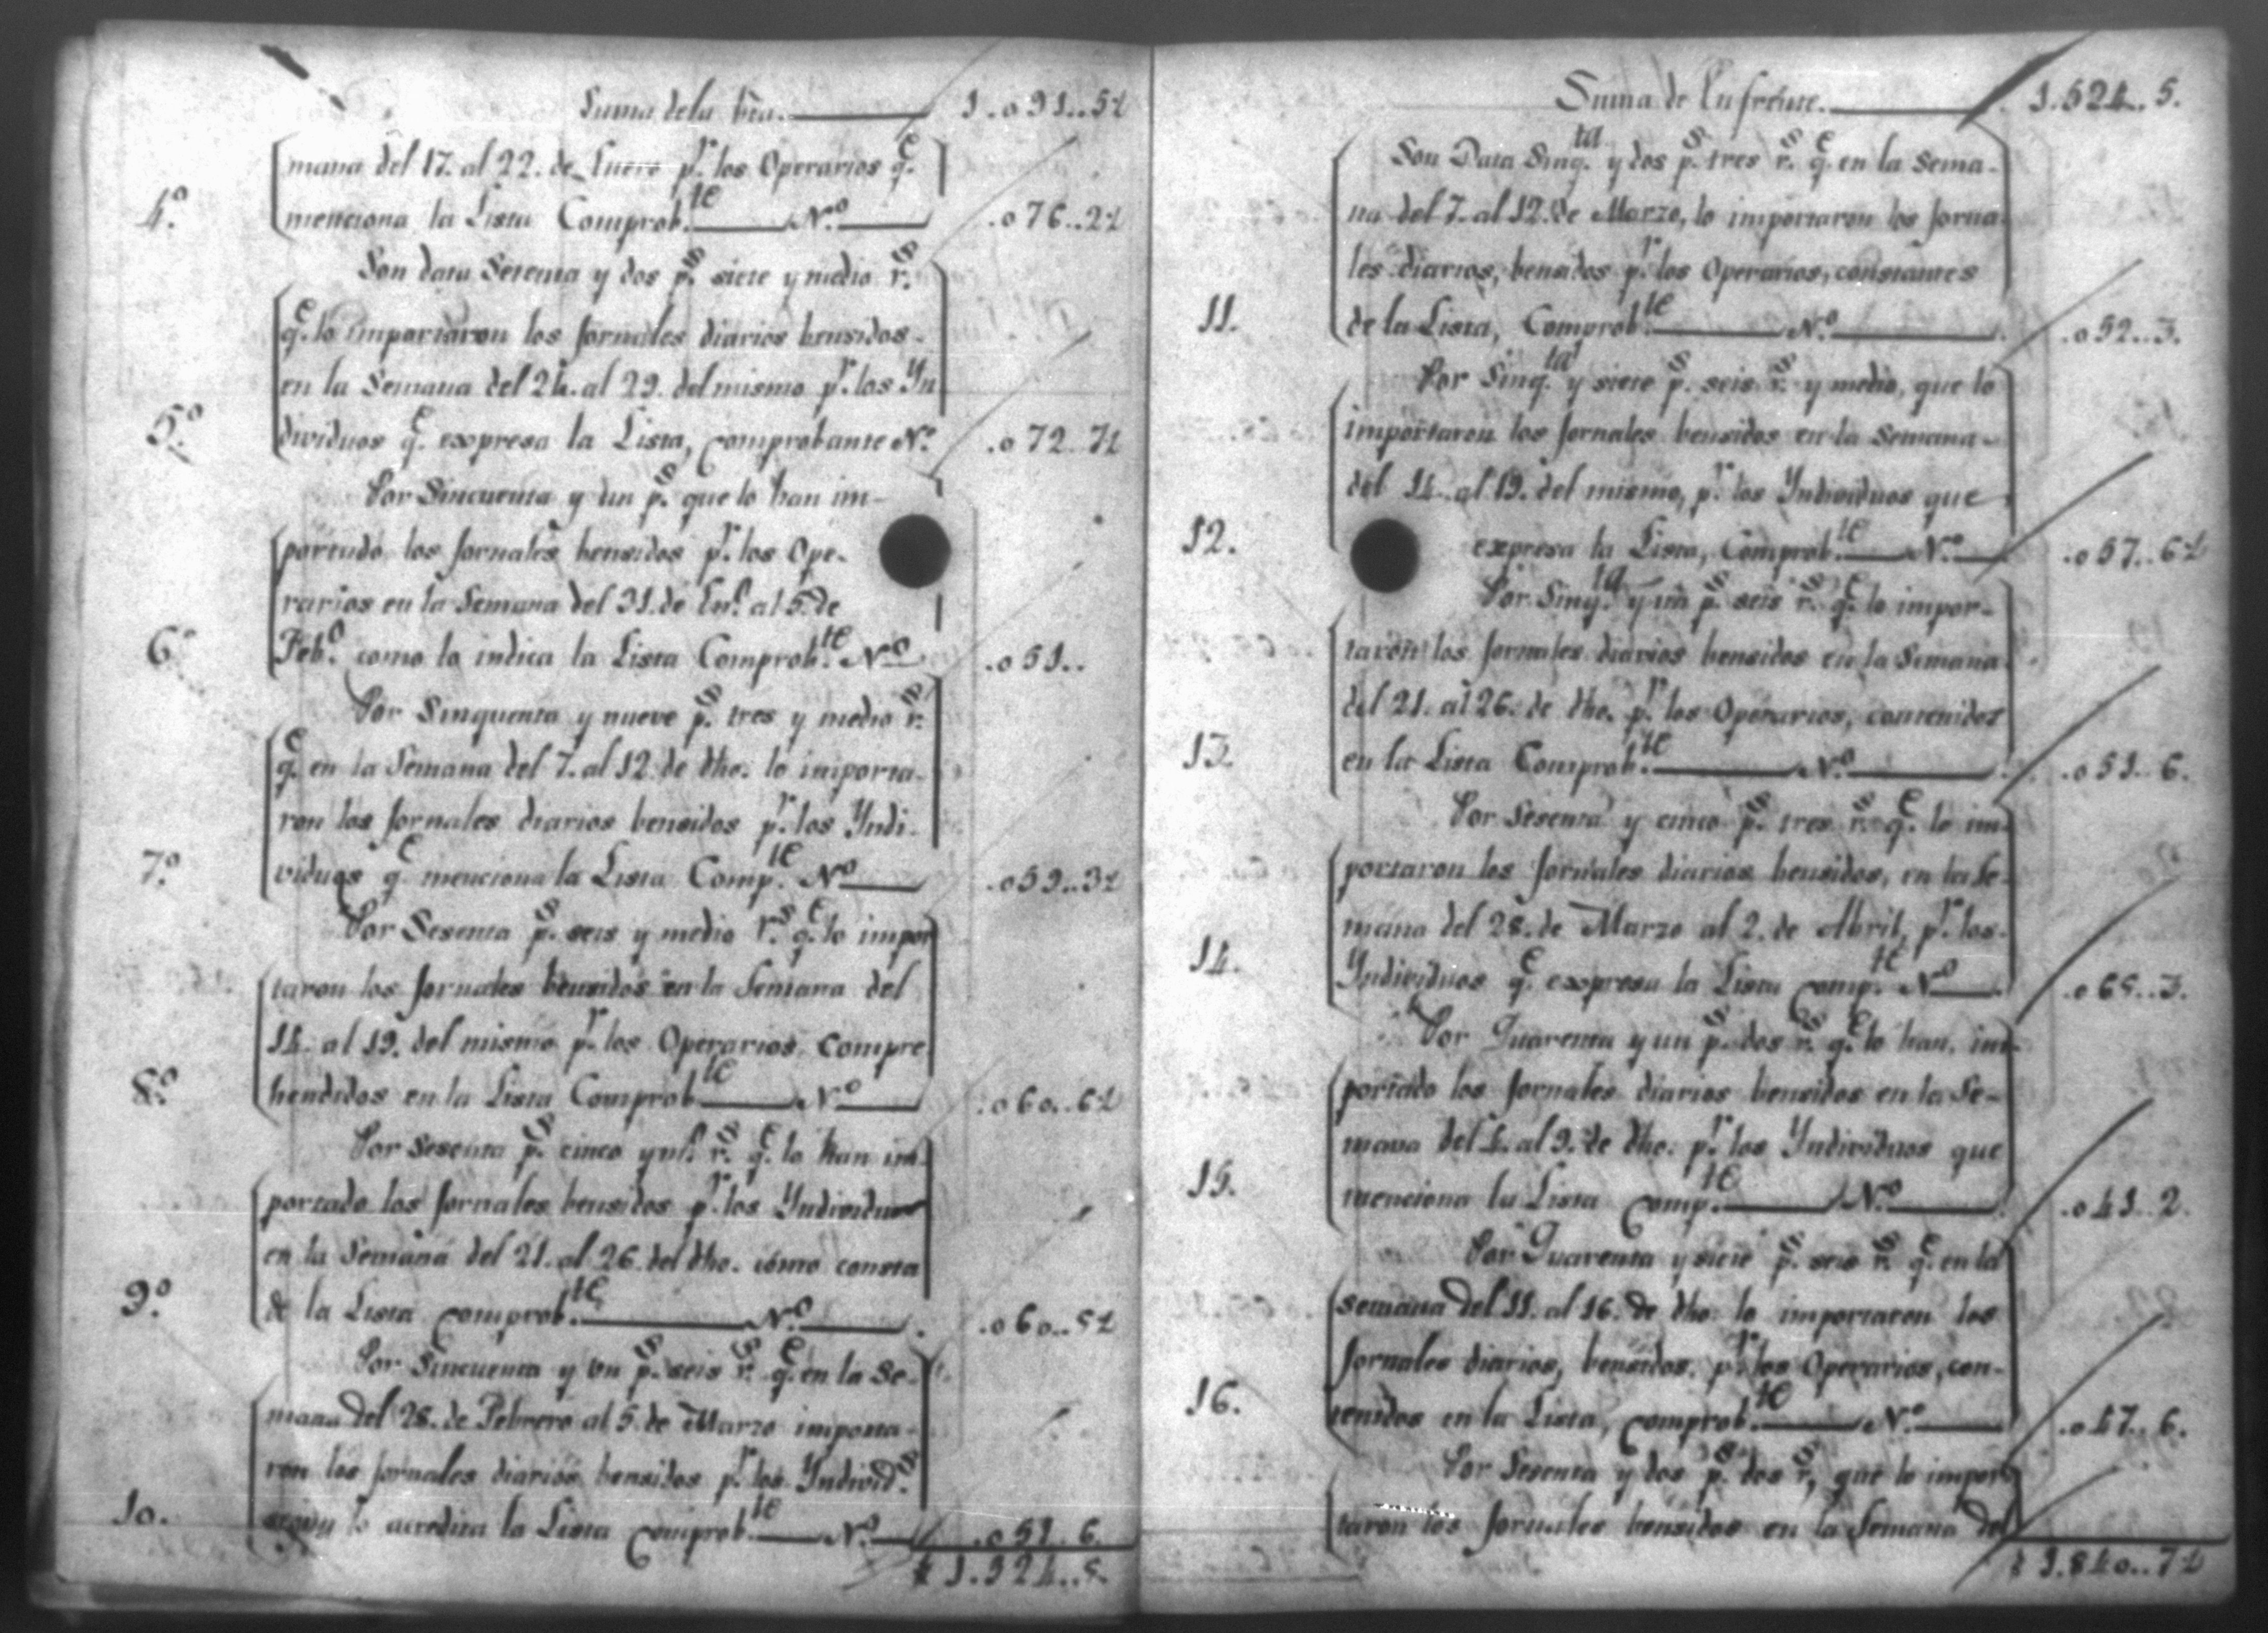 Suma dela bta. 1.091..5½
mana del 17. al 22. de Enero pr. los Operarios qe.
4º. menciona la Lista Comprobte. Nº. .076..2½
Son data Setenta y dos ps. siete y medio rs.
qe. lo importaron los Jornales diarios bensidos
en la Semana del 24. al 29. del mismo pr. los Yn
5º. dividuos qe. expresa la Lista, Comprobante Nº. .072..7½
Por Sincuenta y un ps. que lo han im-
portado los Jornales bensidos pr. los Ope-
rarios en la Semana del 31. de Enº. al 5. de
6º Febº. como lo indica la Lista Comprobte. Nº .051..
Por Sinquenta y nueve ps. tres y medio rs.
qe. en la Semana del 7. al 12. de dho. lo importa-
ron los Jornales diarios bensidos pr. los Yndi-
7º. viduos qe. menciona la Lista Compte. Nº .059..3½
Por Sesenta ps. seis y medio rs. qe. lo impor
taron los Jornales bensidos en la Semana del
14. al 19. del mismo pr. los Operarios, compre
8º. hendidos en la Lista Comprobte. Nº. .060..6½
Por Sesenta ps. cinco y ml. rs. qe. lo han im-
portado los Jornales bensidos pr. los Yndividuos
en la Semana del 21. al 26. del dho. como consta
9º. de la Lista Comprobte. Nº. .060..5½
Por Sincuenta y un ps. seis rs. qe. en la Se-
mana del 28. de Febrero al 5. de Marzo importa-
ron los Jornales diarios bensidos pr. los Yndivids.
10. segun lo acredita la Lista Comprobte. Nº. .051..6.
1.524..5.
Suma de Enfrente. 1.524..5.
Son Data Sinqta. y dos ps. tres rs. qe. en la Sema-
na del 7. al 12. de Marzo, lo importaron los Jorna-
les diarios, bensidos pr. los Operarios, constantes
11. de la Lista, Comprobte. Nº. .052..3.
Por Sinqta. y siete ps. seis rs. y medio, que lo
importaron los Jornales bensidos en la Semana
del 14. al 19. del mismo, pr. los Yndividuos que
12. expresa la Lista, Comprobte. Nº. .057..6½
Por Sinqta. y un ps. seis rs. qe. lo impor-
taron los Jornales diarios bensidos en la Semana
del 21. al 26. de dho. pr. los Operarios, contenidos
13. en la Lista Comprobte. Nº. .051..6.
Por Sesenta y cinco ps. tres rs. qe. lo im-
portaron los Jornales diarios bensidos, en la Se-
mana del 28. de Marzo al 2. de Abril, pr. los
14. Yndividuos qe. expresa la Lista Compte. Nº .065..3.
Por Quarenta y un ps. dos rs. qe. lo han, im-
portado los Jornales diarios bensidos en la Se-
mana del 4. al 9. de dho. pr. los Yndividuos que
15. menciona la Lista Compte. Nº. .041..2.
Por Quarenta y siete ps. seis rs. qe. en la
semana del 11. al 16. de dho. lo importaron los
Jornales diarios, bensidos, pr. los Operarios, con-
16. tenidos en la Lista, Comprobte. Nº. .047..6.
Por Sesenta y dos ps. dos rs, que lo impor
taron los Jornales bensidos en la Semana del
1.840..7½